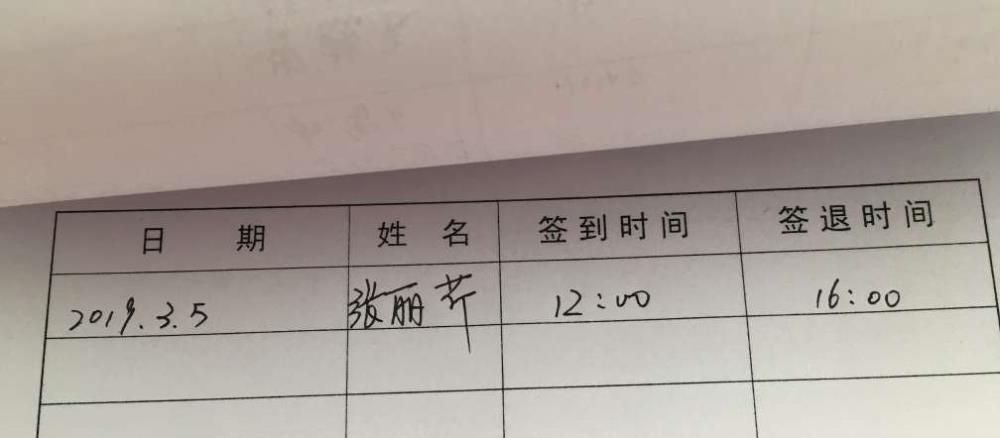 日 期 姓 名 签到时间 签退时间
2019.3.5 张丽芹 12:00 16:00